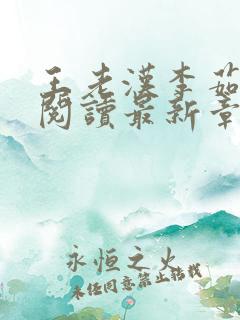 王老漢李茹
閱讀最新章
永恒之火
未经同意禁止转载